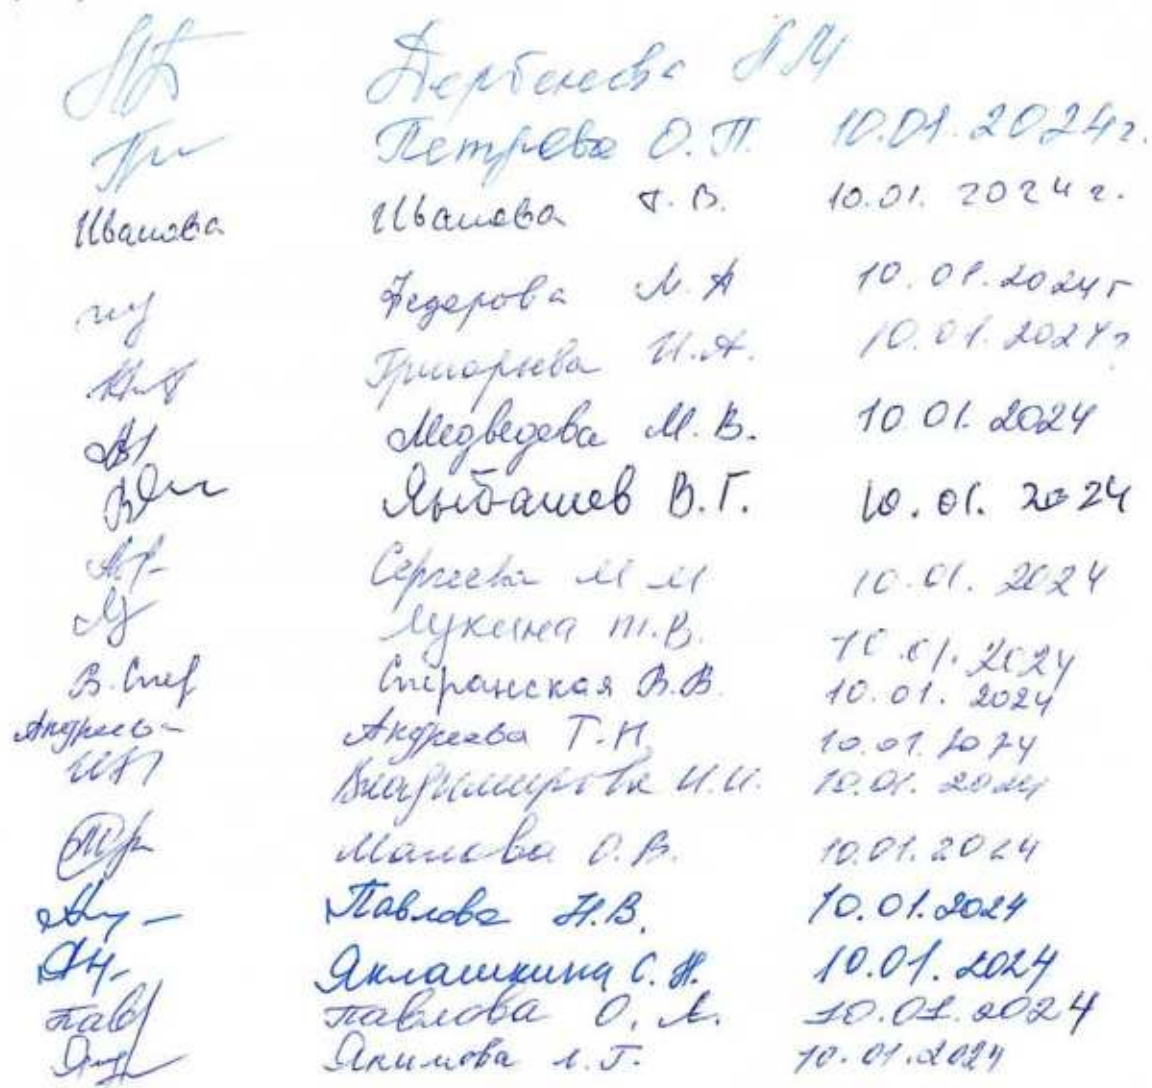 Дербенева
Петрова О.П. 10.01.2024г.
Иванова Иванова Т.В. 10.01.2024г.
Федерова М.А 10.01.2024г
Григорьева И.А. 10.01.2024г
Медведева М.В. 10 01. 2024
Яыбашев В.Г. 10.01.2024
Сергеева М М 10.01.2024
Лукина Т.В. 10.01.2024
В.Спер Сперанская В.В. 10.01.2024
Андреева Андреева Т.Н. 10.01.2024
Владимирова И.И. 10.01.2024
О.В. 10.01.2024
Павлова Н.В. 10.01.2024
Яклашкина С.Н. 10.01.2024
Пав Павлова О.А. 10.01.2024
Якимова Л.Г. 10.01.2024